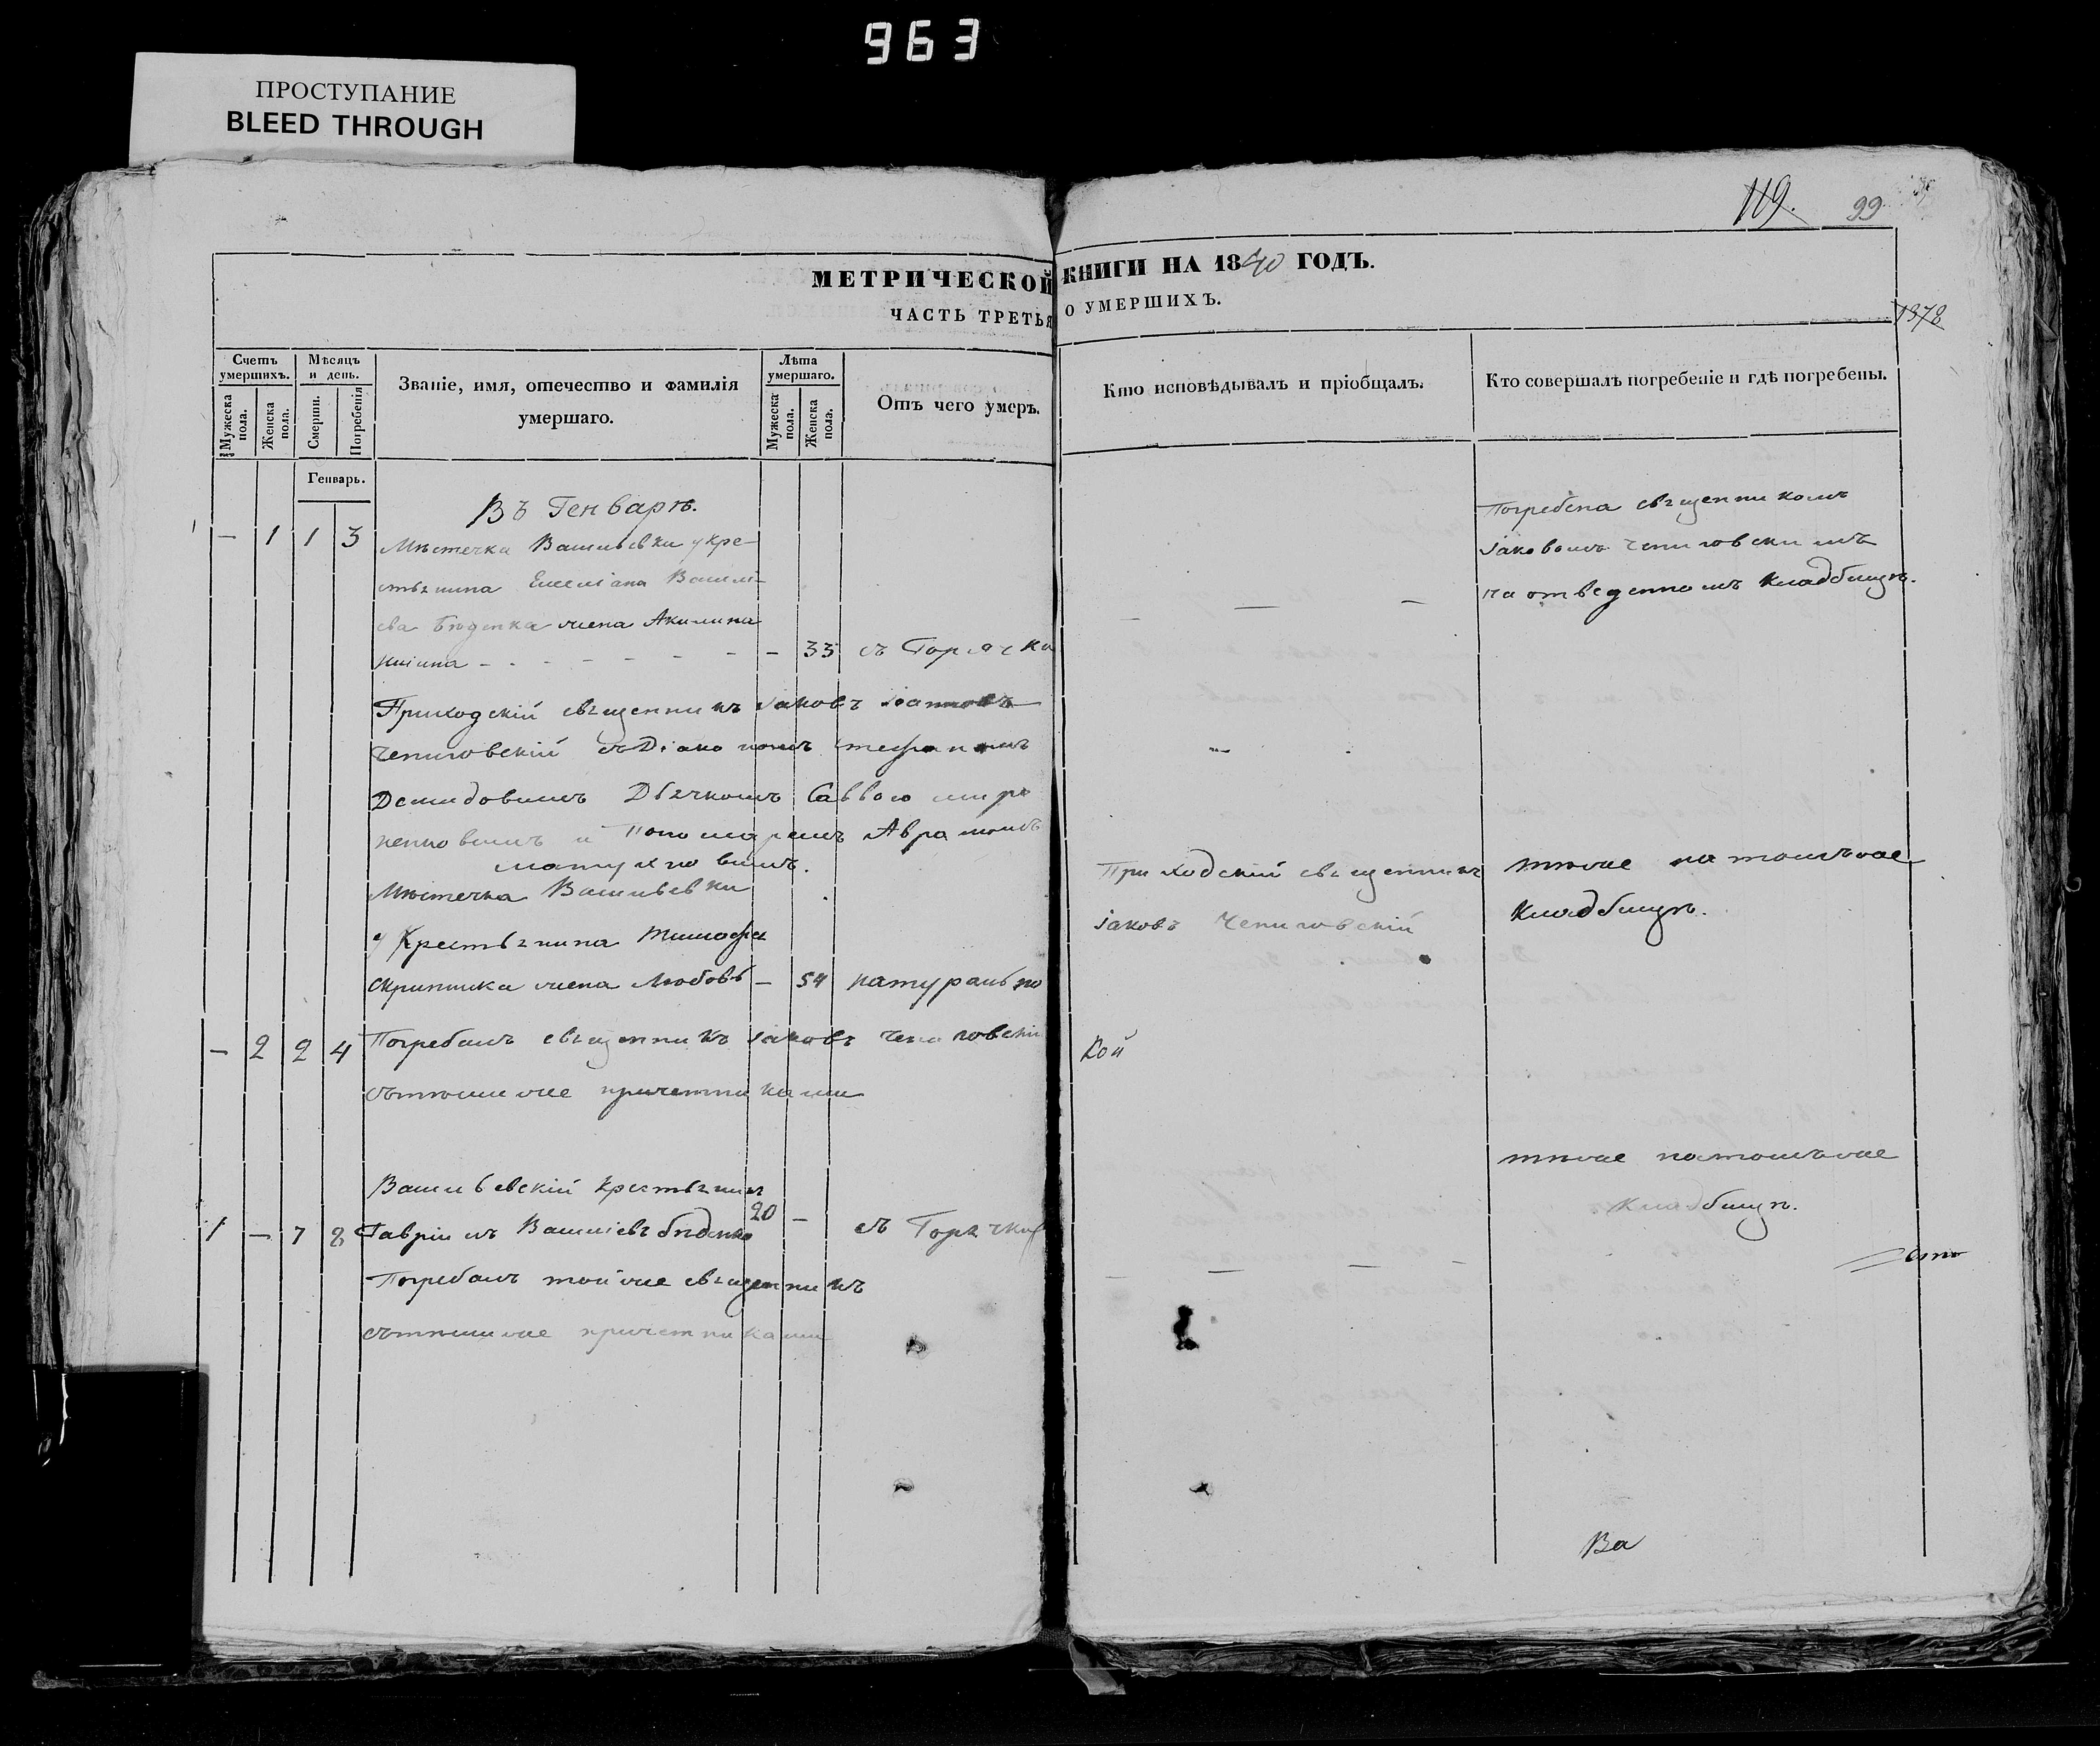 963
ПРОСТУПАНИЕ
BLEED THROUGH
119. 99
МЕТРИЧЕСКОЙ КНИГИ НА 1840 ГОДЪ.
ЧАСТЬ ТРЕТЬЯ О УМЕРШИХЪ.
1878
Счетъ умершихъ.
Мужеска пола.
Женска пола.
Мѣсяцъ и день.
Смерти.
Погребенія
Званіе, имя, отечество и фамилія умершаго.
Лѣта умершаго.
Мужеска пола.
Женска пола.
Отъ чего умеръ.
Кто исповѣдывалъ и пріобщалъ.
Кто совершалъ погребеніе и гдѣ погребены.
Генварь.
Въ Генварѣ.
— 1 1 3 Мѣстечка Васильевки у кре-
стьянина Емеліана Василі-
ева жена Акилина
— 33 съ Горячки
Погребена священникомъ
Іаковомъ Чепиговскимъ
на отведенномъ кладбищѣ.
Приходскій священникъ Іаковъ Іоанновъ
Чепиговскій съ Діакономъ Стефаномъ
Демидовимъ Дьячкомъ Саввою
и Пономаремъ
Мѣстечка Васильевки
у Крестьянина
жена Любовь — 54 натурально
Приходскій священникъ
Іаковъ Чепиговскій
тѣмже на томъже
кладбищѣ.
— 2 2 4 Погребалъ священникъ Іаковъ Чепиговскій
кой
сътѣмиже причетниками
Васильевскій Крестьянинъ
1 — 7 8 Гавріилъ Василіевъ 20 — съ Горячки
тѣмже натомъже
кладбищѣ.
Погребалъ тойже священникъ
сътѣмиже причетниками
Ва